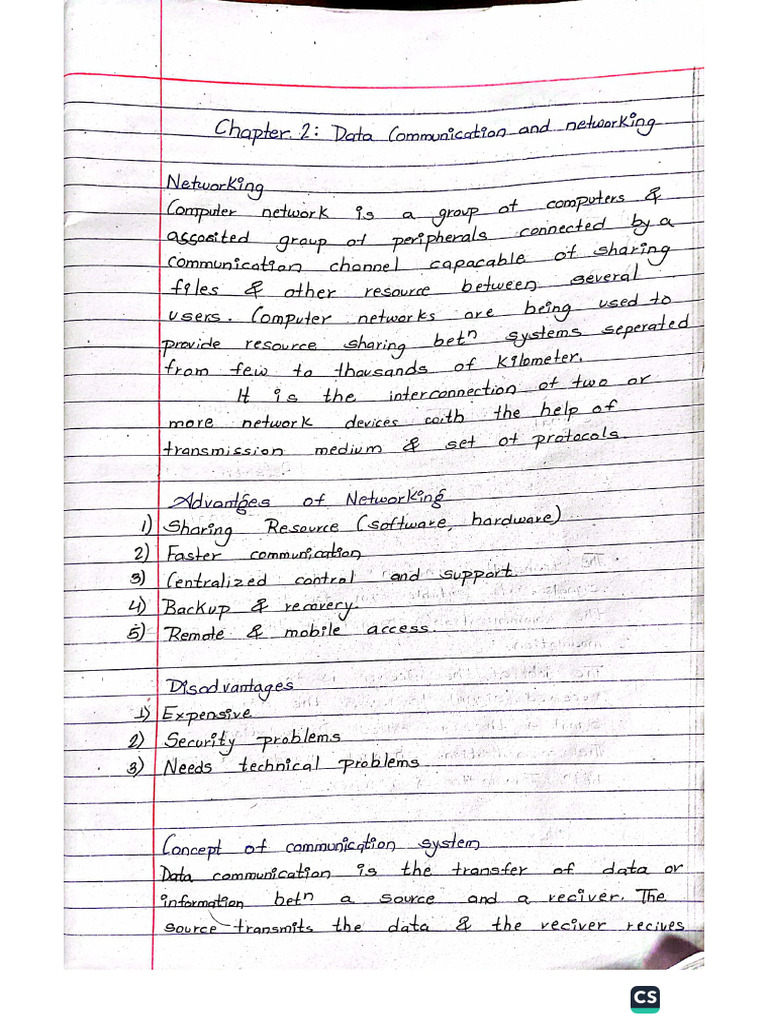 Chapter. 2: Data Communication and networking
Networking
Computer network is a group of computers &
assosited group of peripherals connected by a
communication channel capacable of sharing
files & other resource between several
users. Computer networks are being used to
provide resource sharing betn systems seperated
from few to thousands of kilometer.
It is the interconnection of two or
more network devices with the help of
transmission medium & set of protocols.
Advantges of Networking
1) Sharing Resource (software, hardware)
2) Faster communication
3) Centralized control and support.
4) Backup & recovery.
5) Remote & mobile access.
Disadvantages
1) Expensive
2) Security problems
3) Needs technical problems
Concept of communication system
Data communication is the transfer of data or
information betn a source and a reciver. The
source transmits the data & the reciver recives
CS